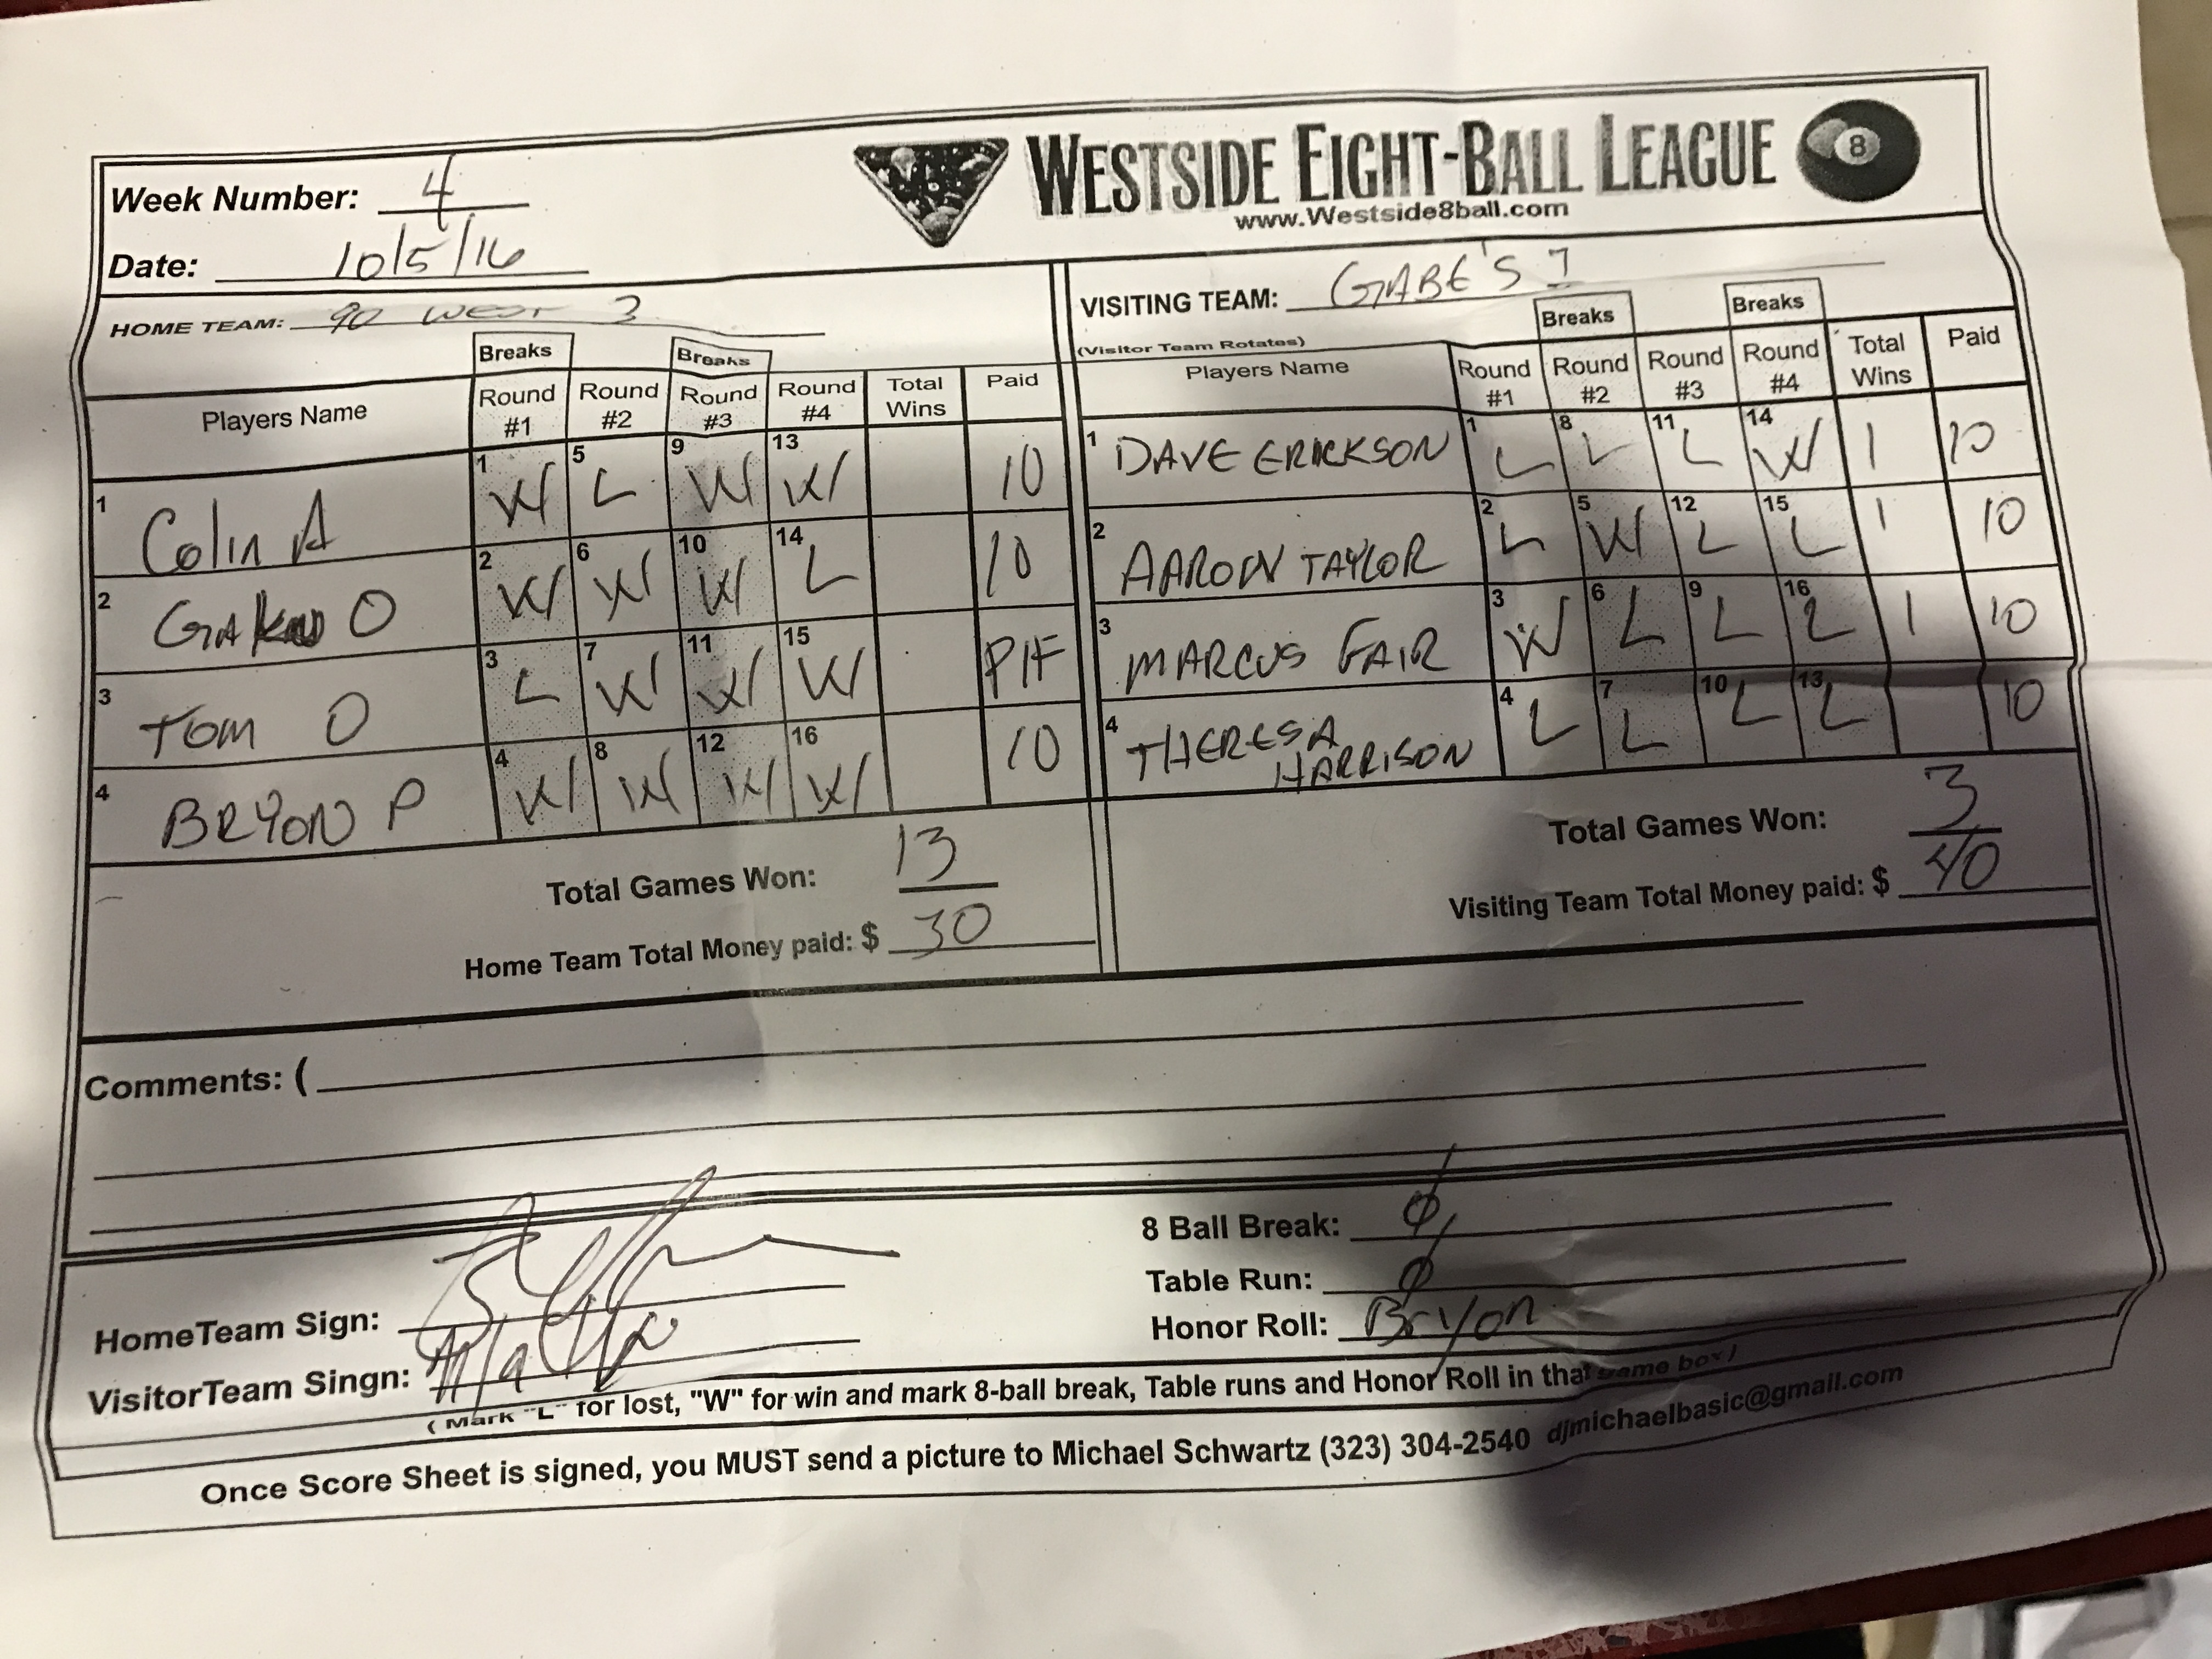 WESTSIDE EIGHT-BALL LEAGUE 8
www.Westside8ball.com
Week Number: 4
Date: 10/5/16
HOME TEAM: 90 West 3
VISITING TEAM: GABE'S I
(Visitor Team Rotates)
Breaks Breaks
Players Name Round #1 Round #2 Round #3 Round #4 Total Wins Paid
1 Colin A 1 W 5 L 9 W 13 W 10
2 O 2 W 6 W 10 W 14 L 10
3 Tom O 3 L 7 W 11 W 15 W PIF
4 BRYON P 4 W 8 W 12 W 16 W 10
Total Games Won: 13
Home Team Total Money paid: $ 30
Breaks Breaks
Players Name Round #1 Round #2 Round #3 Round #4 Total Wins Paid
1 DAVE ERICKSON 1 L 8 L 11 L 14 W 1 10
2 AARON TAYLOR 2 L 5 W 12 L 15 L 1 10
3 MARCUS FAIR 3 W 6 L 9 L 16 L 1 10
4 THERESA HARRISON 4 L 7 L 10 L 13 L 10
Total Games Won: 3
Visiting Team Total Money paid: $ 40
Comments: (
HomeTeam Sign:
VisitorTeam Singn:
8 Ball Break: Ø
Table Run: Ø
Honor Roll: Bryon
( Mark "L" for lost, "W" for win and mark 8-ball break, Table runs and Honor Roll in that same box)
Once Score Sheet is signed, you MUST send a picture to Michael Schwartz (323) 304-2540 djmichaelbasic@gmail.com